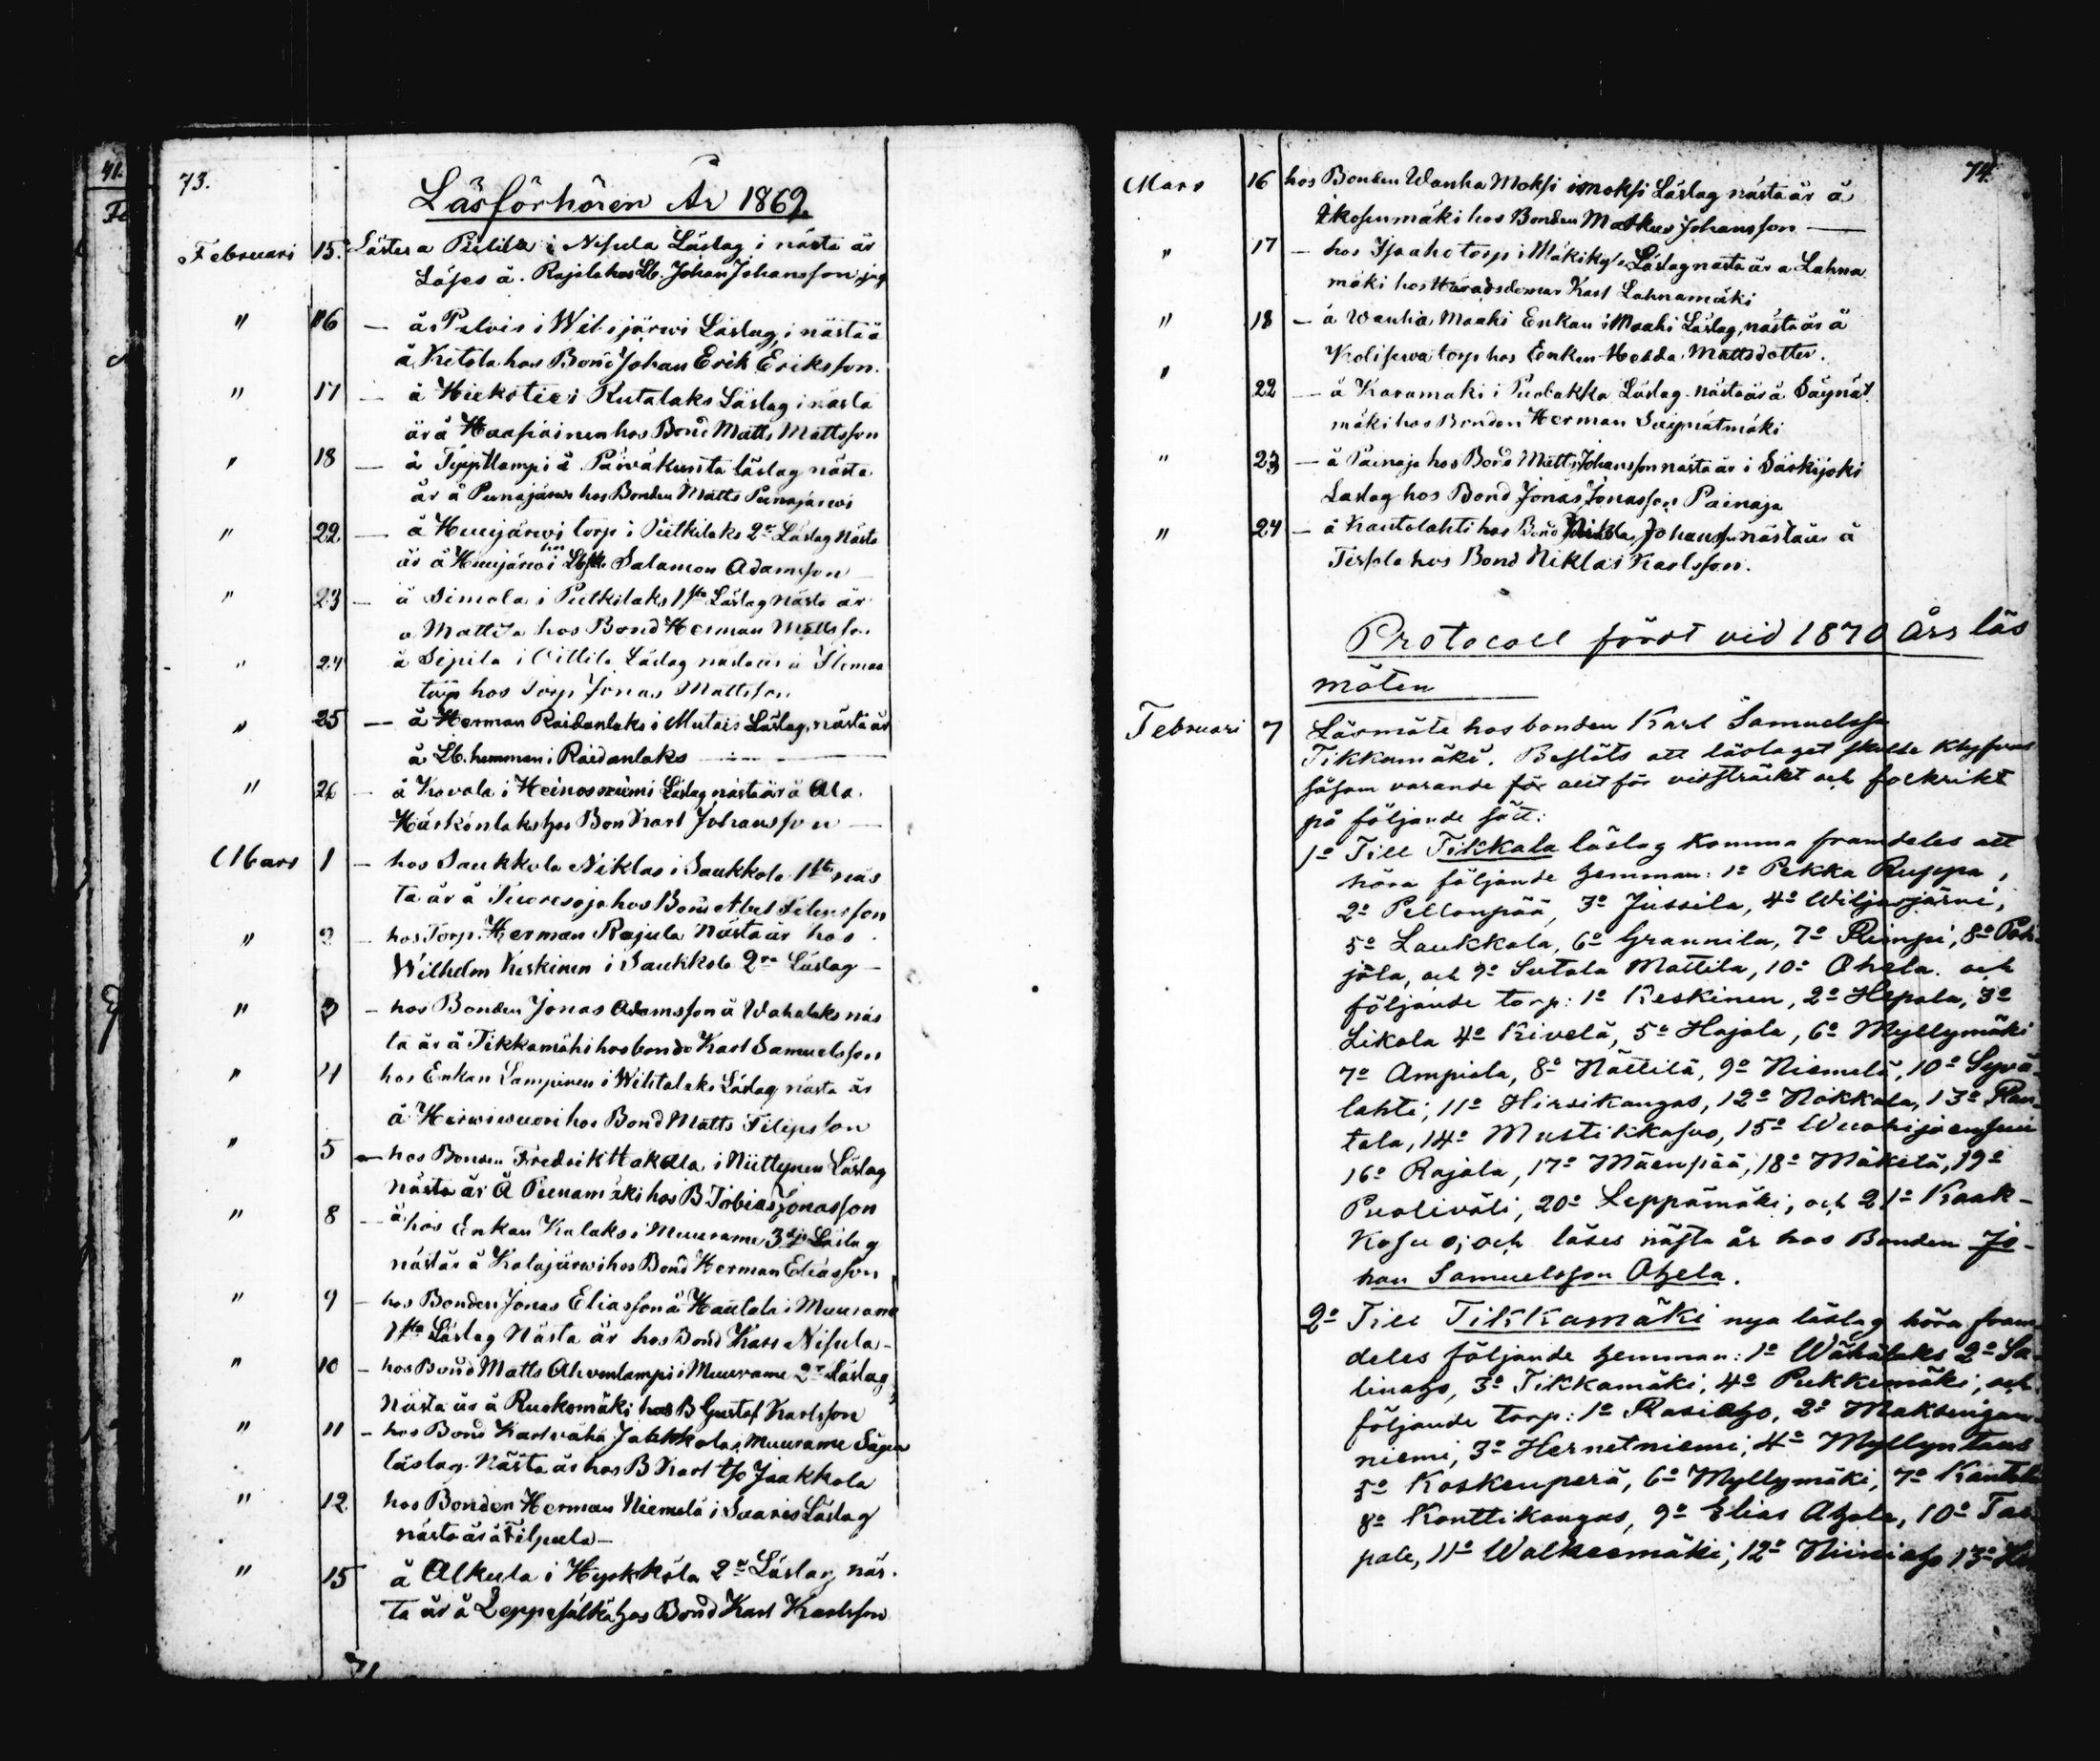 73.
Läsförhören År 1869.
Februari 15. Lästes a Piilila i Nisula Läslag i nästa år
Läses å Rajala hos Lb. Johan Johansson
" 16 — å Pelvis i Wilsjärwi Läslag, i nästa
å Ketola hos Bond Johan Erik Eriksson.
" 17 — å Hiekotie i Rutalaks Läslag i nästa
år å Haapiainen hos Bond Matts Mattsson
" 18 — å Lampi å Päiväkunta läslag nästa
år å Punajärwi hos Bonden Matts Punajärwi
" 22 — å torp i Putkilaks 2a Läslag nästa
år å hos Salamon Adamsson
" 23 — å Simola i Putkilaks 1sta Läslag nästa år
a Mattila hos Bond Herman Mattsson
" 24 å Sipila i Läslag nästa år
torp hos Torp Jonas Mattsson
" 25 — å Herman Raidanlaks i Mutais Läslag, nästa år
å Lb. hemman i Raidanlaks
" 26 — å Kovala i Heinosniemi Läslag nästa år å Ala
hos Bon Karl Johansson
Mars 1 — hos Saukkola Niklas i Saukkola 1sta näs
ta år å hos Bond Abel Filipsson
" 2 — hos Torp. Herman Rajula Nästa år hos
Wilhelm Keskinen i Saukkola 2ra Läslag —
" 3 — hos Bonden Jonas Adamsson å Wahalaks näs
ta år å Tikkamäki hos bonde Karl Samuelsson
" 4 hos Enkan Lampinen i Läslag nästa år
å Hirwiwuori hos Bond Matts Filipsson
" 5 — hos Bonden Fredrik Hakala i Niittynen Läslag
Nästa år Å hos B Tobias Jonasson
" 8 — å hos Enkan Kalaks i Muurame 3dje Läslag
nästa år å Kalajärwi hos Bond Herman Eliasson
" 9 — hos Bonden Jonas Eliasson å Hautala i Muurame
1sta Läslag Nästa år hos Bond Karl Nisula —
" 10 — hos Bond Matts Ahvenlampi i Muurame 2a Läslag
Nästa år å Ruokomäki hos B Gustaf Karlsson
" 11 — hos Bond Karl vähä Jaakkola i Muurame Sågen
läslag. Nästa år hos B Karl Jaakkola
" 12 hos Bonden Herman Niemelä i Saaris Läslag
nästa år å Filpula —
" 15 å Alkula i Hyökkölä 2a Läslag näs-
ta år å Leppesälkä hos Bond Karl Karlsson
74.
Mars 16 hos Bonden Wanha Moksi i moksi Läslag nästa år å
Ikosenmäki hos Bonden Markus Johansson —
" 17 — hos Isoaho torp i Mäkikylä Läslag nästa år a Lahna
mäki hos Häradsdomar Karl Lahnamäki
" 18 — å Wanha Maahi Enkan i Maahi Läslag, nästa år å
torp hos Enkan Hedda Mattsdotter.
" 22 — å Karamaki i Puolakka Läslag nästa år å Säynät
mäki hos Bonden Herman Säynätmäki
" 23 — å Painaja hos Bond Matts Johansson nästa år i Säskijoki
Laslag hos Bond Jonas Jonasson Painaja
" 24 — å Kautolahti hos Bond Niklas Johansson nästa år å
hos Bond Niklas Karlsson.
Protocoll fördt vid 1870 Års läs
möten
Februari 7 Läsmöte hos bonden Karl Samuelsson
Tikkamäki. Beslöts att läslaget skulle klyfvas
såsom varande för allt för vidsträckt och folkrikt
på följande sätt:
1o Till Tikkala läslag komma framdeles att
höra följande hemman: 1o Pekka Ruppa,
2o Pellonpää, 3o Jussila, 4o Wiljasjärvi,
5o Laukkala, 6o Grannila, 7o Rimpi, 8o Poh-
jola, och 9o Sutola Mattila, 10o Ahola. och
följande torp: 1o Keskinen, 2o Hepola, 3o
Likola 4o Kivelä, 5o Hajala, 6o Myllymäki
7o Ampiala, 8o Nättilä, 9o Niemelä, 10o Syvä-
lahti, 11o Hirsikangas, 12o Nokkala, 13o Ran-
tala, 14o Mustikkasuo, 15o Wuohijoensuu
16o Rajala, 17o Mäenpää, 18o Mäkelä, 19o
Puoliväli, 20o Leppämäki, och 21o Kaak-
kosuo; och läses nästa år hos Bonden Jo-
han Samuelsson Ahola.
2o Till Tikkamäki nya läslag höra fram-
deles följande hemman: 1o Wähälaks 2o Sa-
linaho, 3o Tikkamäki, 4o Pukkimäki, och
följande torp: 1o Rasiaho, 2o
niemi, 3o Hernetniemi, 4o Myllyntaus
5o Koskenperä, 6o Myllymäki, 7o Kantola
8o Konttikangas, 9o Elias Ahola, 10o Taa-
pale, 11o Walkeemäki, 12o Niiniaho 13o